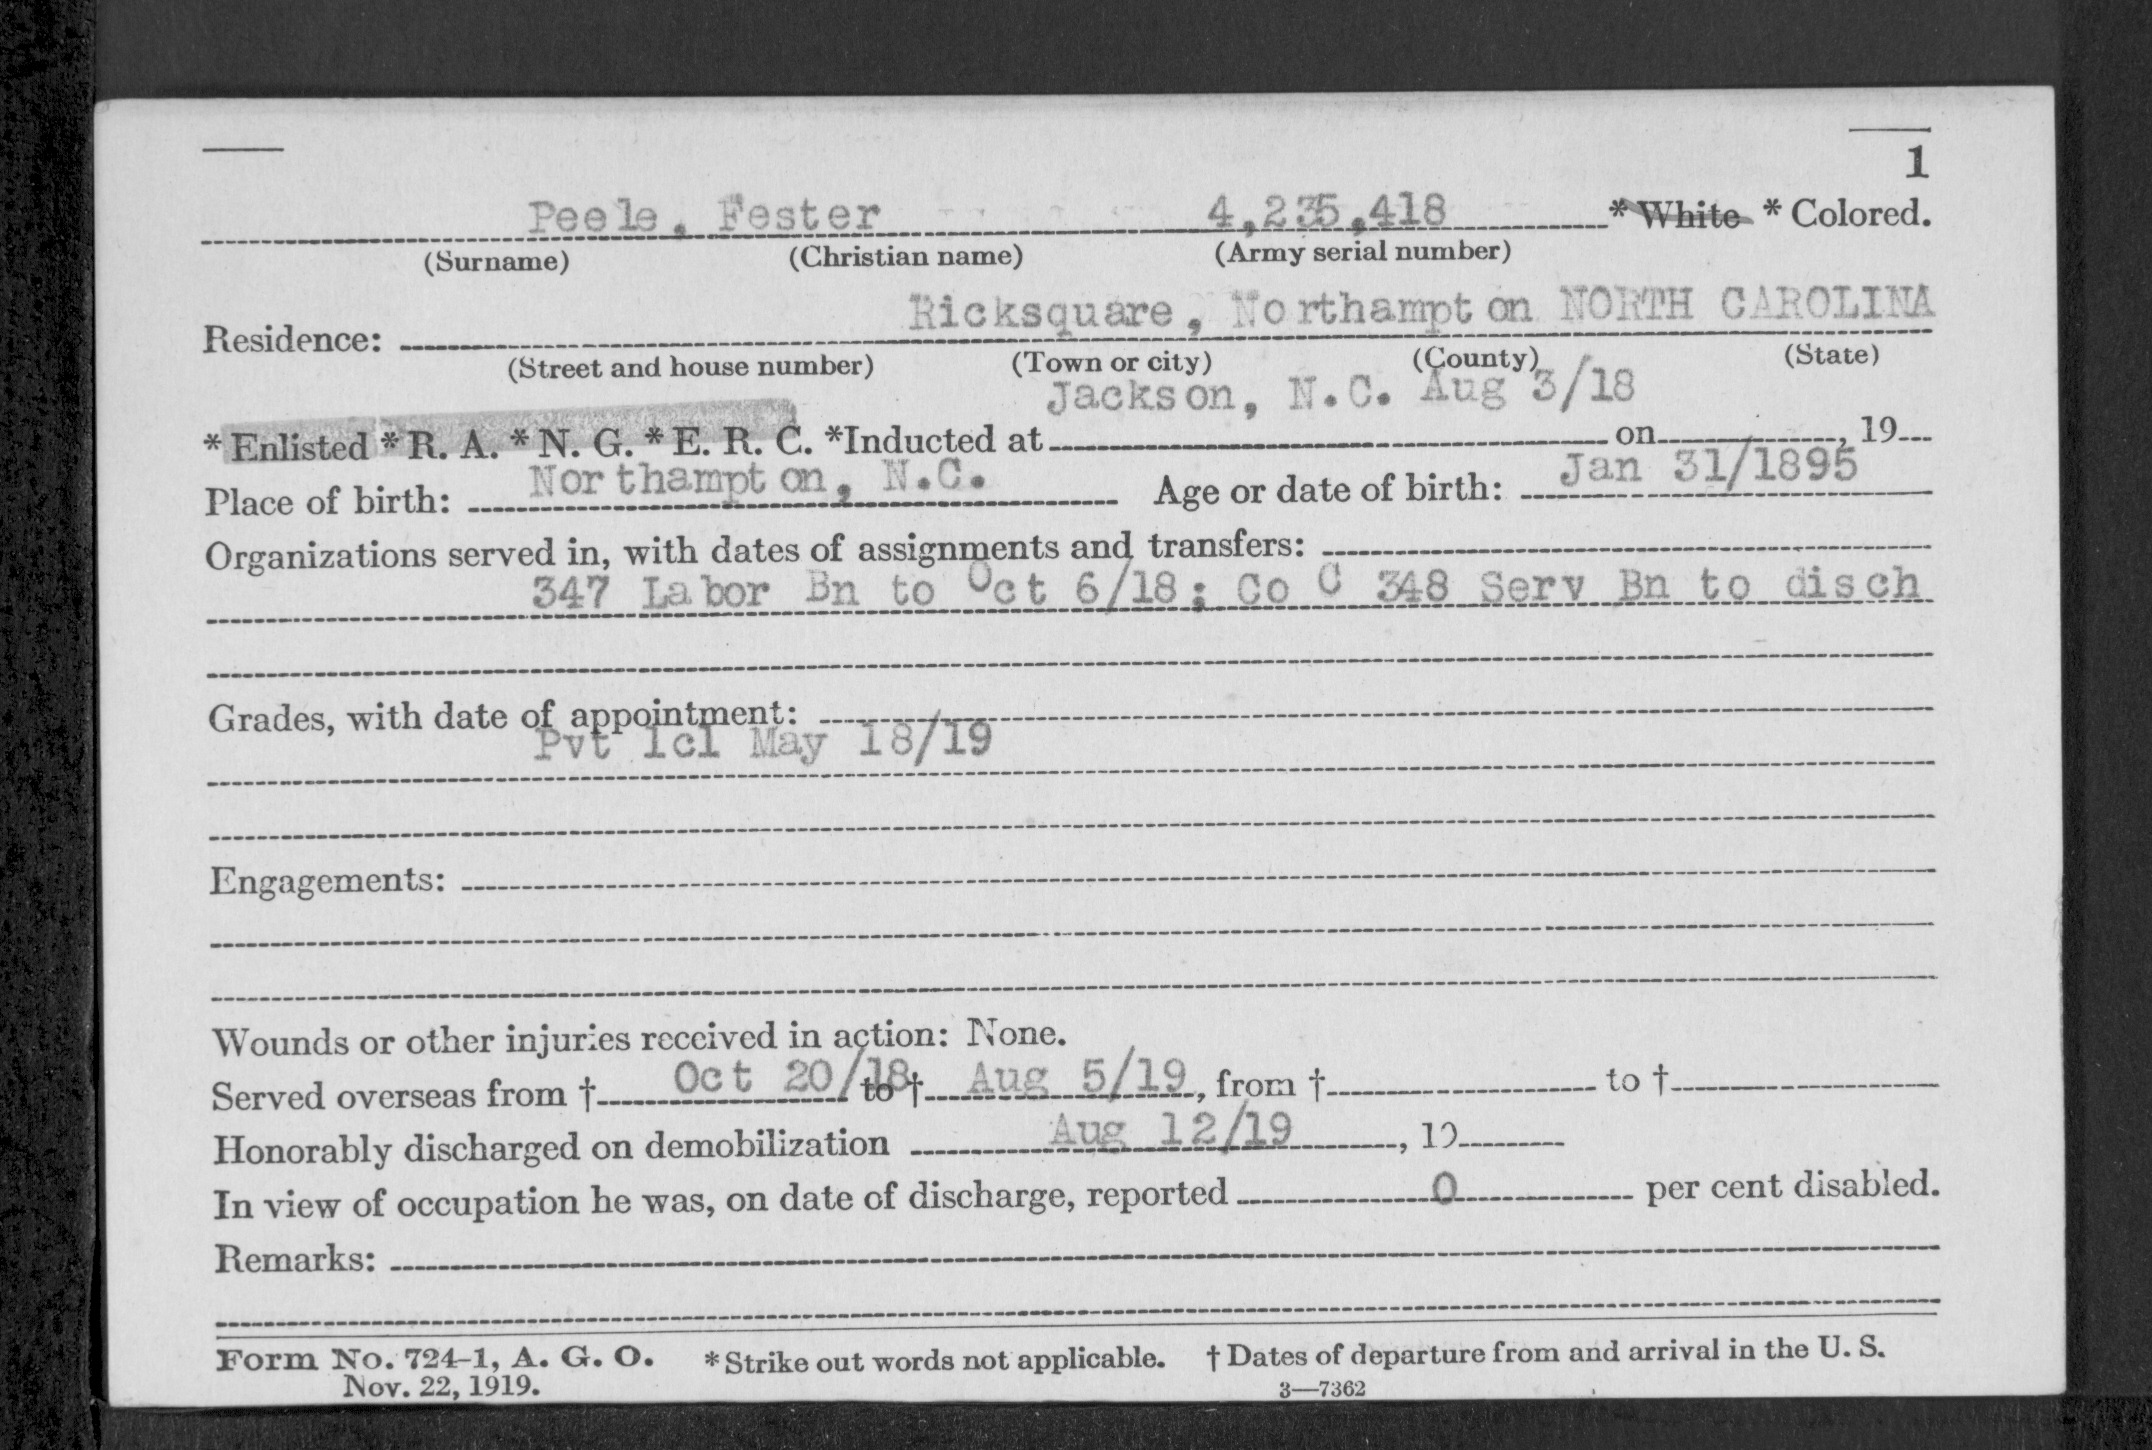 1
Peele, Fester 4,235,418 * White * Colored.
(Surname) (Christian name) (Army serial number)
Residence: Ricksquare, Northampton NORTH CAROLINA
(Street and house number) (Town or city) (County) (State)
Jackson, N.C. Aug 3/18
* Enlisted * R. A. * N. G. * E. R. C. *Inducted at on , 19
Place of birth: Northampton, N.C. Age or date of birth: Jan 31/1895
Organizations served in, with dates of assignments and transfers:
347 Labor Bn to Oct 6/18; Co C 348 Serv Bn to disch
Grades, with date of appointment:
Pvt 1cl May 18/19
Engagements:
Wounds or other injuries received in action: None.
Served overseas from † Oct 20/18 to † Aug 5/19, from † to †
Honorably discharged on demobilization Aug 12/19, 19
In view of occupation he was, on date of discharge, reported 0 per cent disabled.
Remarks:
Form No. 724-1, A. G. O. * Strike out words not applicable. † Dates of departure from and arrival in the U. S.
Nov. 22, 1919. 3—7362